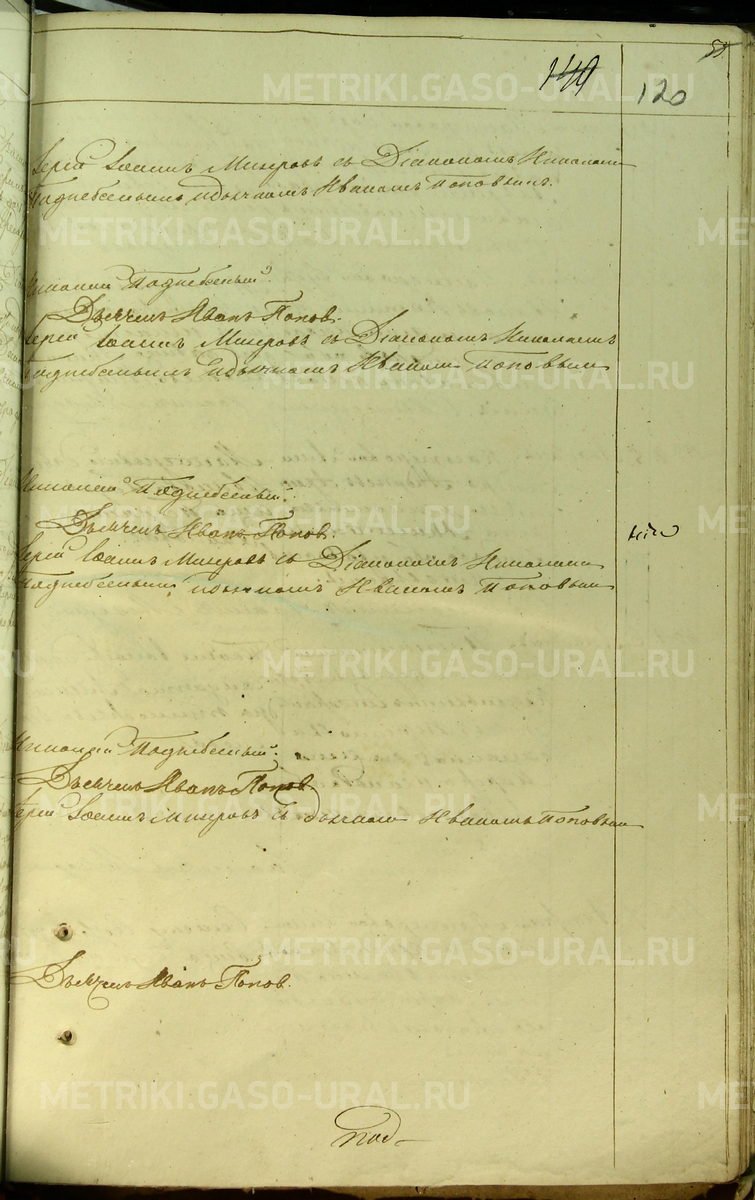 140
120
Іерей Іоаннъ Мизеровъ съ Діакономъ Николаем
Поднебеснымъ и дьячкомъ Иваномъ Поповымъ.
Николай Поднебесный.
Дьячекъ Иванъ Попов.
Іерей Іоаннъ Мизеровъ съ Діакономъ Николаемъ
Поднебеснымъ и дьячкомъ Иваномъ Поповым
Николай Поднебесный.
Дьячекъ Иванъ Попов.
Іерей Іоаннъ Мизеровъ съ Діакономъ Николаем
Поднебесным дьячкомъ Иваномъ Поповым
Николай Поднебесный.
Дьячекъ Иванъ Попов.
Іерей Іоаннъ Мизеровъ съ дьячкомъ Иваномъ Поповым
Дьячекъ Иванъ Попов.
под-
METRIKI.GASO-URAL.RU